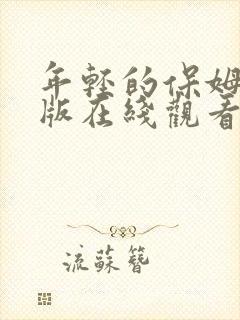 年轻的保姆
版在线觀看
流蘇簪